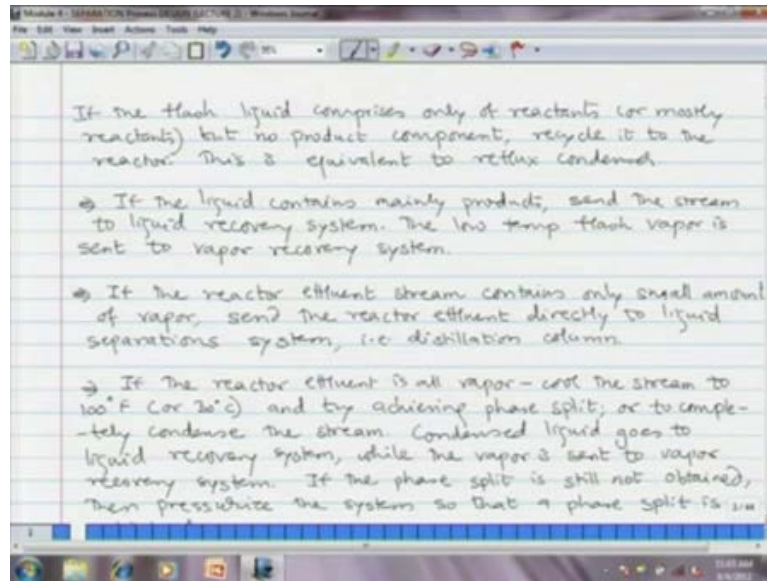 Module 4 - SEPARATION Process DESIGN (LECTURE 2) - Windows Journal
File Edit View Insert Actions Tools Help
If the flash liquid comprises only of reactants (or mostly
reactants) but no product component, recycle it to the
reactor. This is equivalent to reflux condenser.
⇒ If the liquid contains mainly products, send the stream
to liquid recovery system. The low temp flash vapor is
sent to vapor recovery system.
⇒ If the reactor effluent stream contains only small amount
of vapor, send the reactor effluent directly to liquid
separations system, i.e. distillation column.
⇒ If the reactor effluent is all vapor - cool the stream to
100°F (or 30°C) and try achieving phase split; or to comple-
-tely condense the stream. Condensed liquid goes to
liquid recovery system, while the vapor is sent to vapor
recovery system. If the phase split is still not obtained,
then pressurize the system so that a phase split is
1
11:03 AM